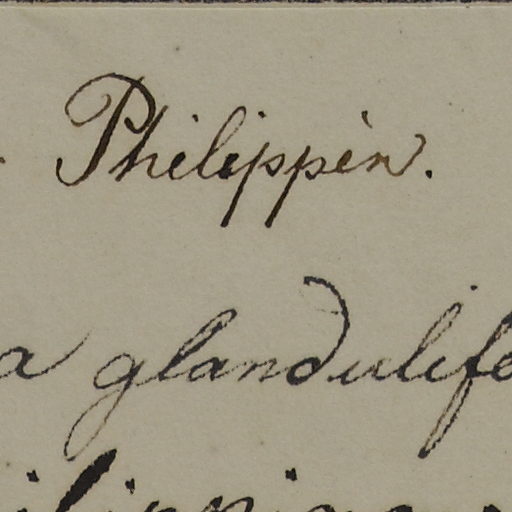 Philippin.
a glandulife